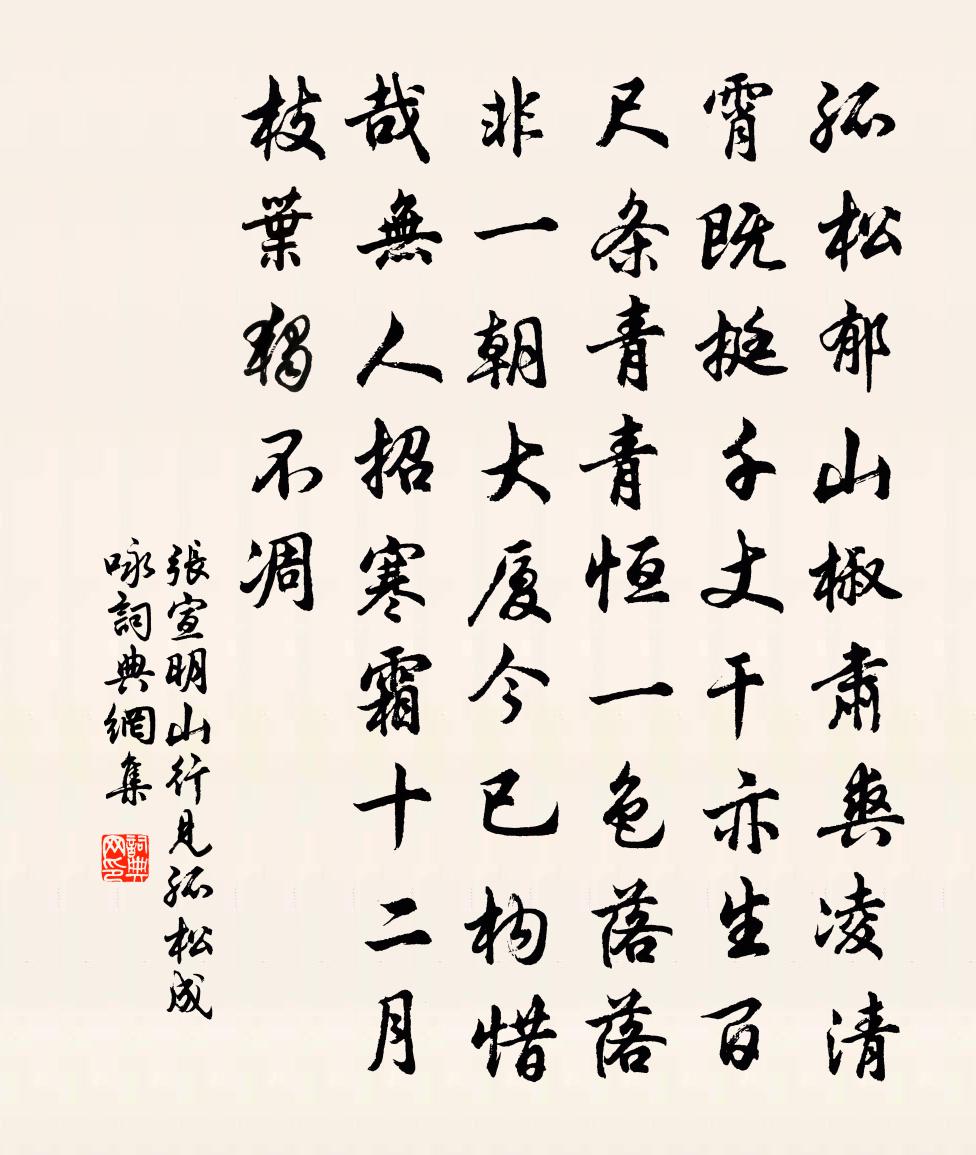 孤松郁山椒肅爽凌清
霄既挺千丈干亦生百
尺条青青恒一色落落
非一朝大厦今已构惜
哉無人招寒霜十二月
枝葉獨不凋
張宣明山行見孤松成
咏詞典網集
詞典网印